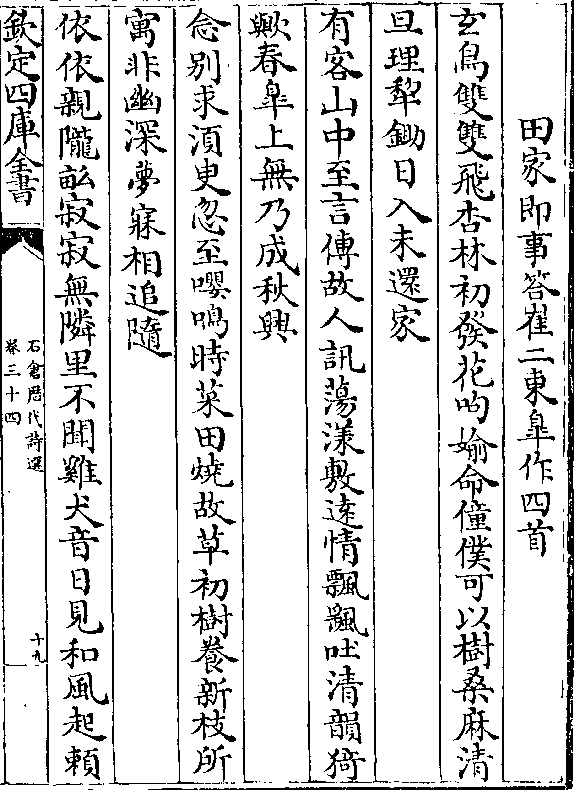 田家即事答崔二東臯作四首
玄鳥雙雙飛杏林初發花呴媮命僮僕可以樹桑麻清
旦理犂鋤日入未還家
有客山中至言傳故人訊蕩漾敷遠情飄颻吐清韻猗
歟春臯上無乃成秋興
念别求湏㬰忽至嚶鳴時菜田燒故草初樹養新枝所
寓非幽深夢寐相追隨
依依親隴畝寂寂無隣里不聞雞犬音日見和風起頼
欽定四庫全書
石倉歴代詩選
卷三十四
十九